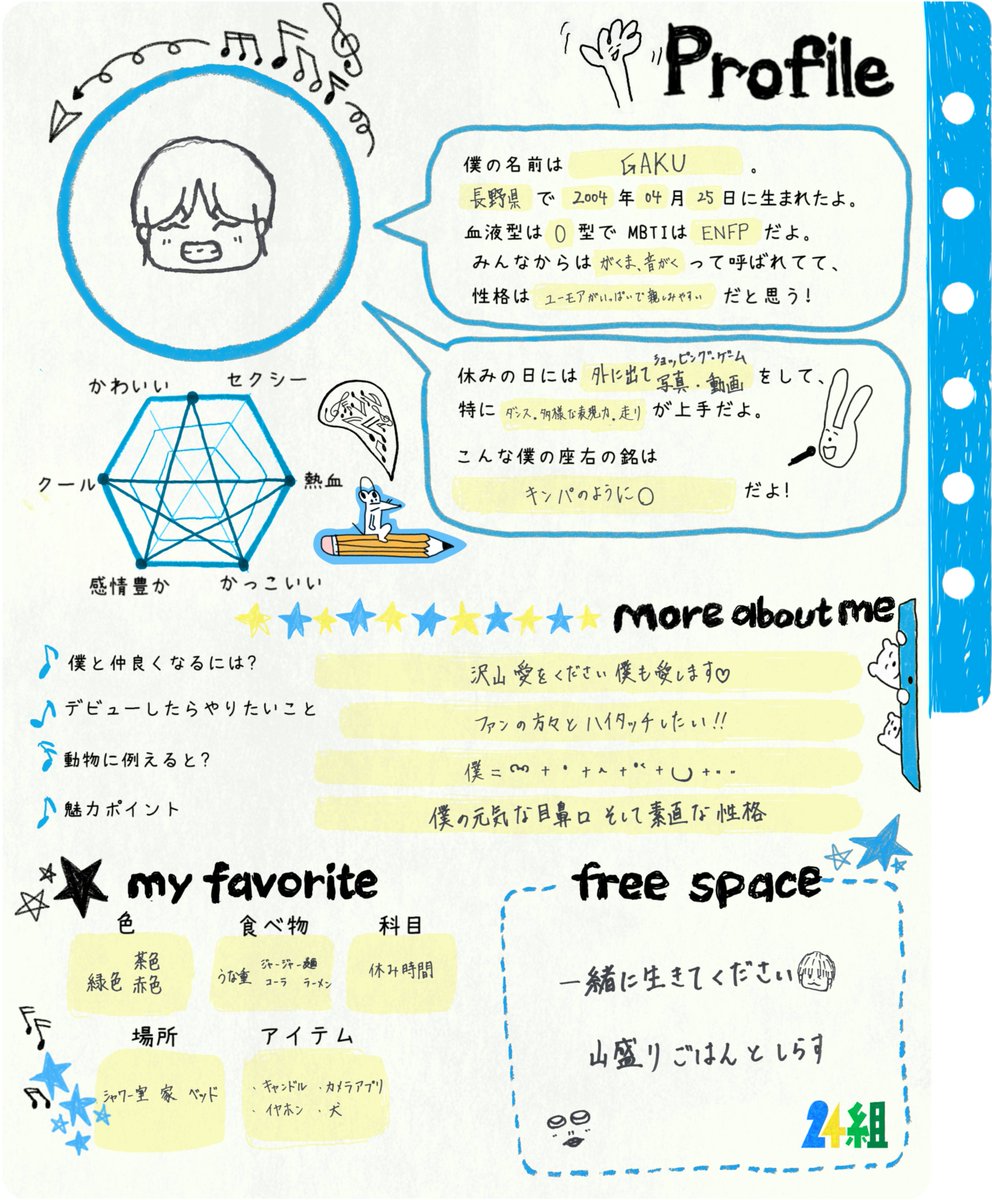 Profile
僕の名前は GAKU 。
長野県 で 2004 年 04 月 25 日に生まれたよ。
血液型は O 型で MBTIは ENFP だよ。
みんなからは がくま、音がく って呼ばれてて、
性格は ユーモアがいっぱいで親しみやすい だと思う!
ショッピング・ゲーム
休みの日には 外に出て 写真・動画 をして、
特に ダンス。多様な表現力。走り が上手だよ。
こんな僕の座右の銘は
キンパのように○ だよ!
かわいい
セクシー
クール
熱血
感情豊か
かっこいい
more about me
僕と仲良くなるには? 沢山愛をください 僕も愛します♡
デビューしたらやりたいこと ファンの方々とハイタッチしたい!!
動物に例えると? 僕=
魅力ポイント 僕の元気な目鼻口 そして素直な性格
my favorite
色 食べ物 科目
緑色 茶色 赤色
うな重 ジャージャー麺 コーラ ラーメン
休み時間
場所 アイテム
シャワー室 家 ベッド
・キャンドル ・カメラアプリ
・イヤホン ・犬
free space
一緒に生きてください
山盛りごはんとしらす
24組